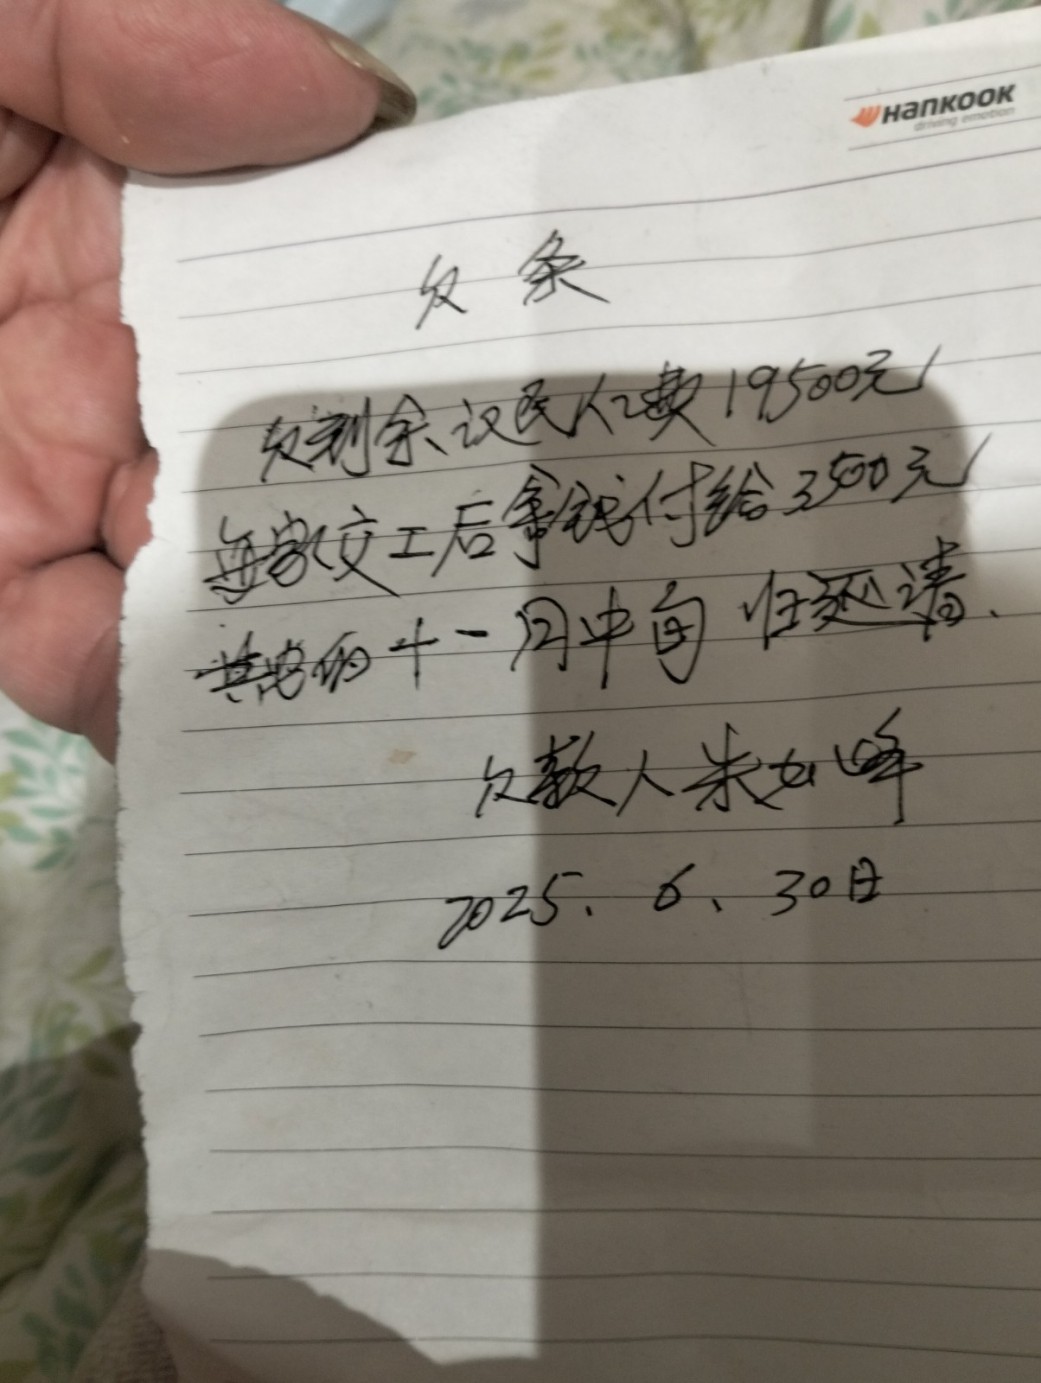 HANKOOK
driving emotion
欠条
欠剩余议民人工费19500元
每家交工后拿钱付给3500元
其它的十一月中旬 归还清、
欠款人朱女峰
2025、6、30日